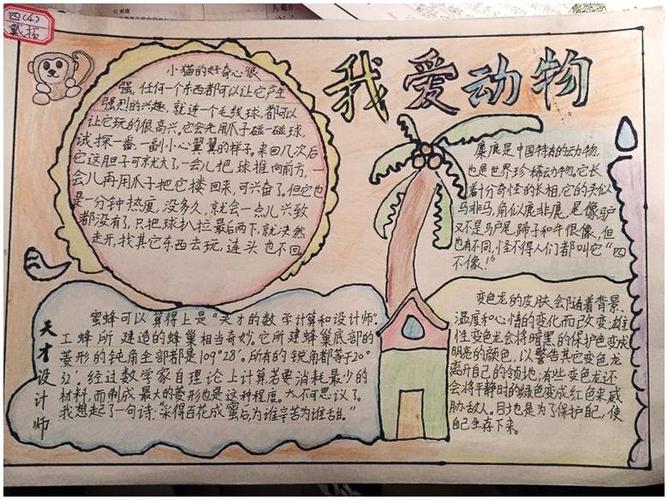 四(4)
戴拓
我爱动物
小猫的好奇心很
强,任何一个东西都可以让它产生
强烈的兴趣,就连一个毛线球,都可以
让它玩的很高兴,它会先用爪子碰一碰球,
试探一番,一副小心翼翼的样子,来回几次后
它这胆子可就大了,一会儿把球推向前方,一
会儿再用爪子把它搂回来,可兴奋了,但它也
是一分钟热度,没多久,就会一点儿兴致
都没有了,只把球扒拉最后两下,就决然
走开,找其它东西去玩,连头也不回
麋鹿是中国特有的动物,
也是世界珍稀动物,它长
着十分奇怪的长相,它的头似
马非马,角似鹿非鹿,尾像驴
又不是马尾,蹄子和牛很像,但
也有不同,怪不得人们都叫它“四
不像!”
天才设计师
蜜蜂可以算得上是“天才的数学计算和设计师”.
工蜂所建造的蜂巢相当奇妙,它所建蜂巢底部的
菱形的钝角全部都是109°28′,所有的锐角都等于70°
32′,经过数学家自理论上计算若要消耗最少的
材料,而制成最大的菱形也是这种程度,太不可思议了。
我想起了一句诗:“采得百花成蜜后为谁辛苦为谁甜。”
变色龙的皮肤会随着背景、
温度和心情的变化而改变:雄
性变色龙会将暗黑的保护色变成
明亮的颜色,以警告其它变色龙
离开自己的领地;有些变色龙还
会将平静时的绿色变成红色来威
胁敌人。目地是为了保护自己,使
自己生存下来。